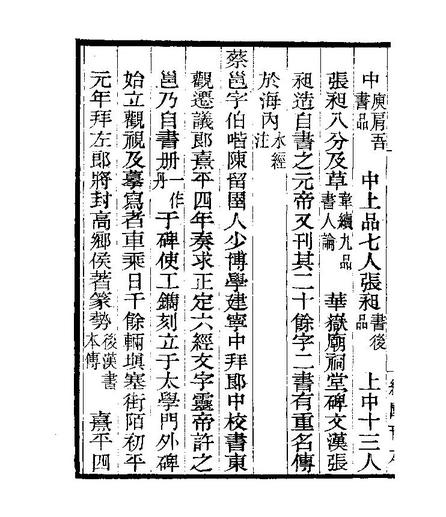 中庾肩吾書品 中上品七人張昶書後品 上中十三人
張昶八分及草韋續九品書人論 華嶽廟祠堂碑文漢張
昶造自書之元帝又刊其二十餘字二書有重名傳
於海內水經注
蔡邕字伯喈陳留圉人少博學建寧中拜郎中校書東
觀遷議郎熹平四年奏求正定六經文字靈帝許之
邕乃自書册一作丹于碑使工鐫刻立于太學門外碑
始立觀視及摹寫者車乘日千餘輛塡塞街陌初平
元年拜左郎將封高鄉侯著篆勢後漢書本傳 熹平四